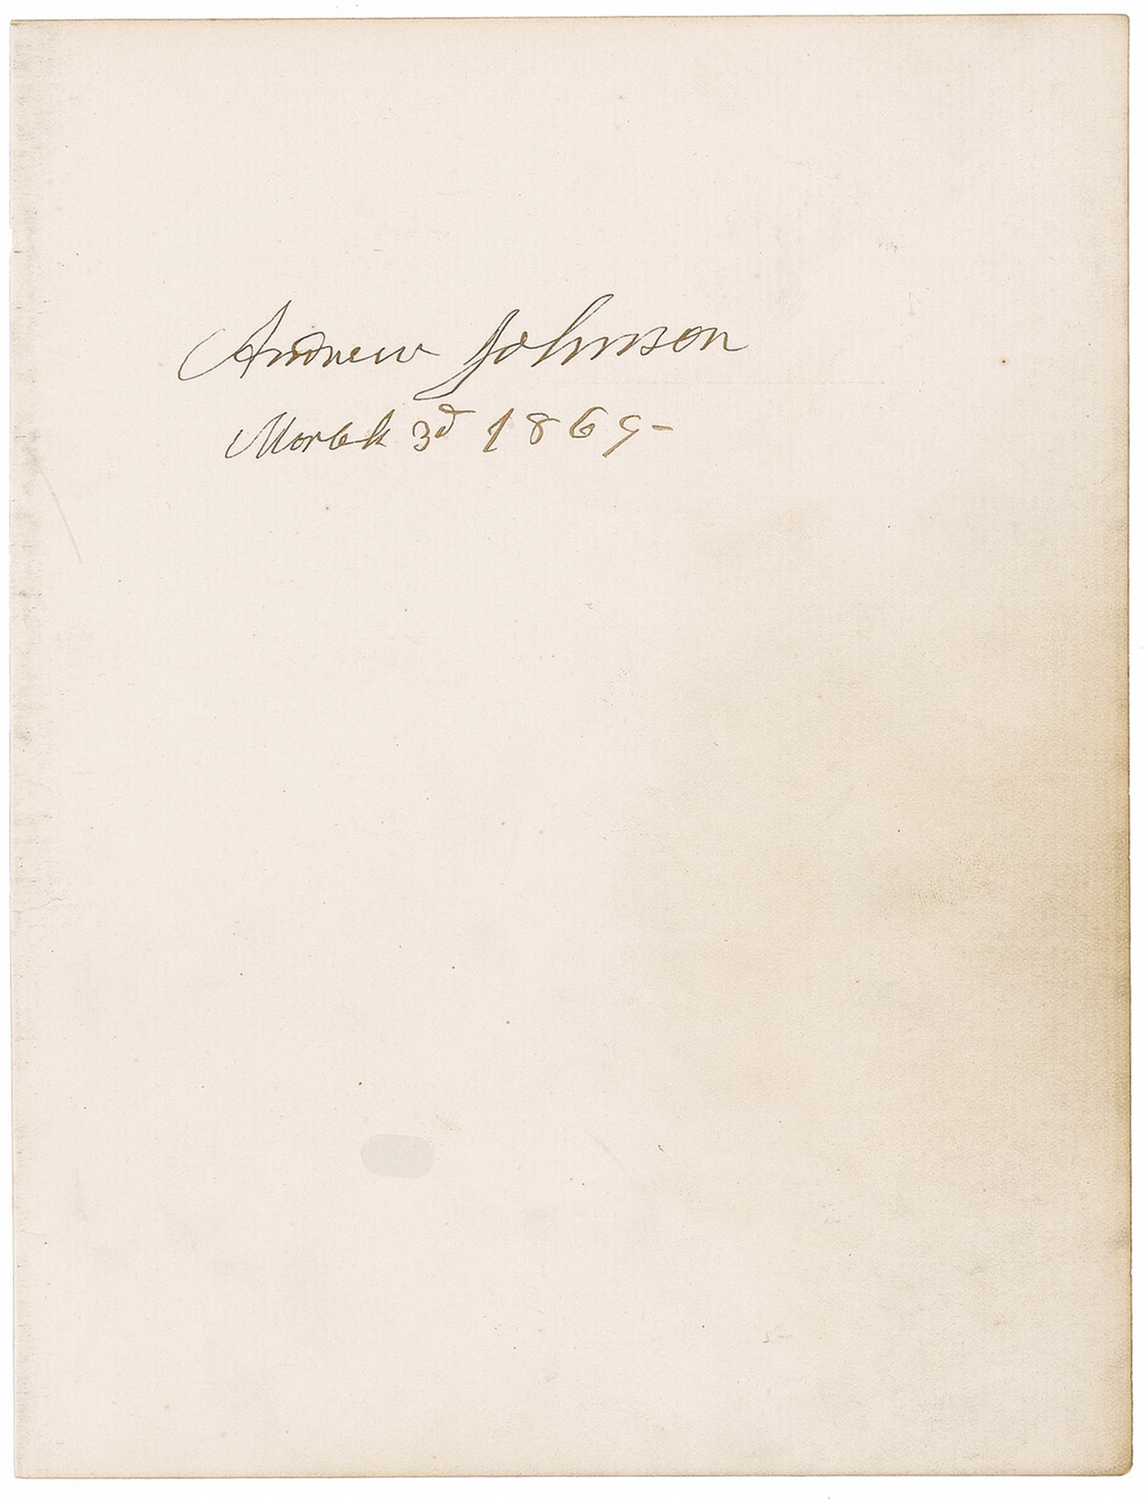 Andrew Johnson
March 3d 1869-